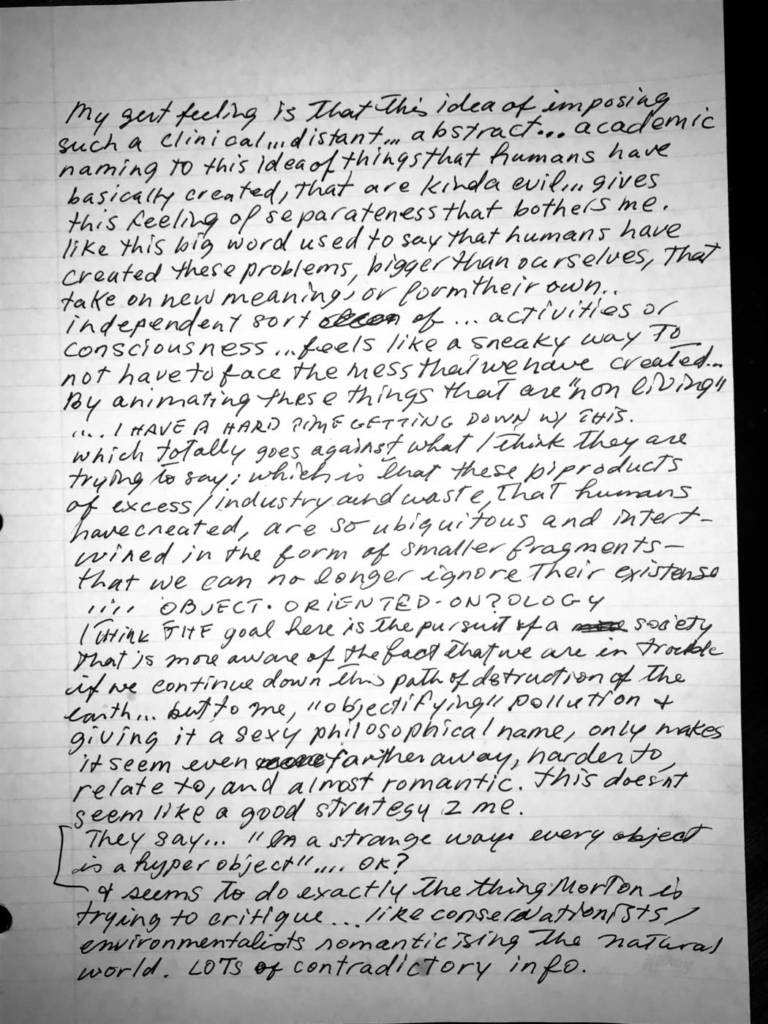 My gut feeling is that this idea of imposing
such a clinical... distant... abstract... academic
naming to this idea of things that humans have
basically created, that are kinda evil... gives
this feeling of separateness that bothers me.
like this big word used to say that humans have
created these problems, bigger than ourselves, that
take on new meanings or form their own..
independent sort of ... activities or
consciousness... feels like a sneaky way to
not have to face the mess that we have created...
By animating these things that are "non living"
.... I HAVE A HARD TIME GETTING DOWN W/ THIS.
which totally goes against what I think they are
trying to say; which is that these biproducts
of excess/industry and waste, that humans
have created, are so ubiquitous and intert-
wined in the form of smaller fragments-
that we can no longer ignore their existense
..... OBJECT-ORIENTED-ONTOLOGY
I think THE goal here is the pursuit of a society
that is more aware of the fact that we are in trouble
if we continue down this path of dstruction of the
earth... but to me, "objectifying" pollution &
giving it a sexy philosophical name, only makes
it seem even farther away, harder to,
relate to, and almost romantic. this doesnt
seem like a good strategy 2 me.
They say... "In a strange way every object
is a hyper object".... OK?
& seems to do exactly the thing Morton is
trying to critique... like conservationists/
environmentalists romanticising the natural
world. LOTS of contradictory info.